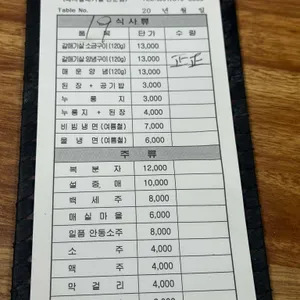 Table No. 20 년 월 일
19
식 사 류
품 목 단 가 수 량
갈매기살 소금구이 (120g) 13,000
갈매기살 양념구이 (120g) 13,000 正正
매 운 양 념 (120g) 13,000
된 장 + 공 기 밥 3,000
누 룽 지 3,000
누 룽 지 + 된 장 4,000
비 빔 냉 면 (여름철) 7,000
물 냉 면 (여름철) 6,000
주 류
복 분 자 12,000
설 중 매 10,000
백 세 주 8,000
매 실 마 을 6,000
일품 안동소주 8,000
소 주 4,000
맥 주 4,000
막 걸 리 4,000
3,000